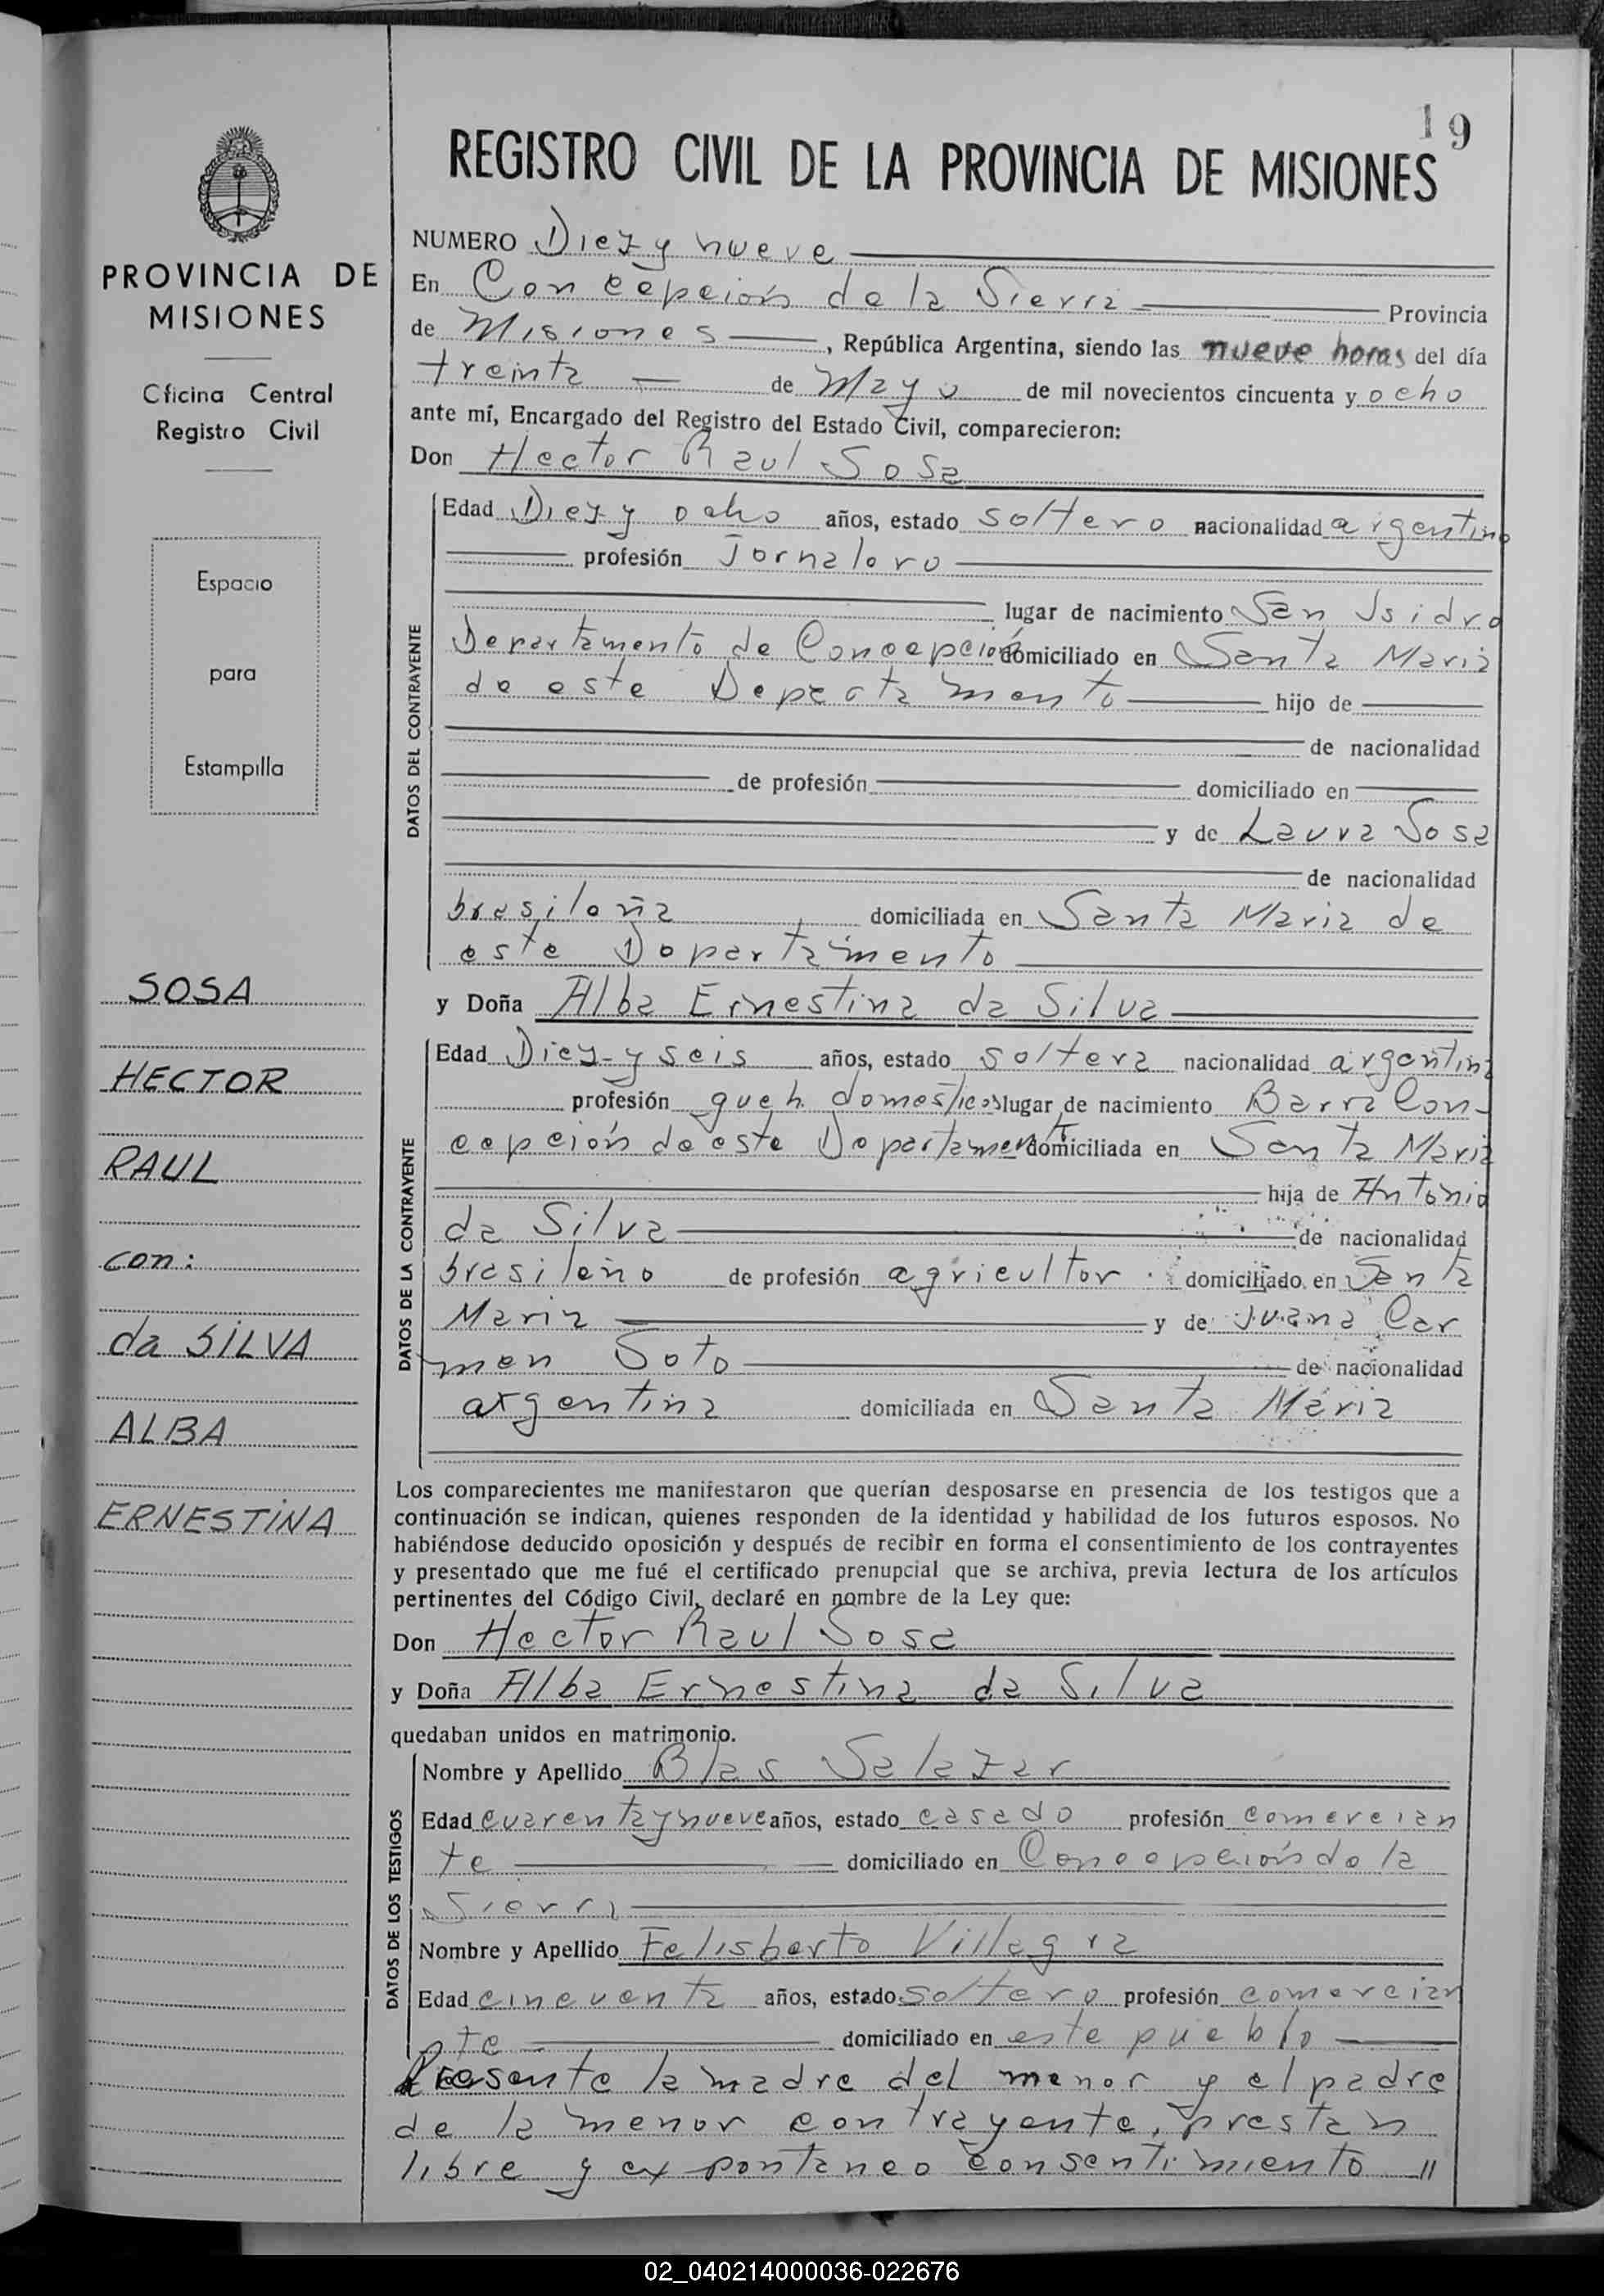 19
REGISTRO CIVIL DE LA PROVINCIA DE MISIONES
PROVINCIA DE
MISIONES
Oficina Central
Registro Civil
Espacio
para
Estampilla
SOSA
HECTOR
RAUL
con:
da SILVA
ALBA
ERNESTINA
NUMERO Diez y nueve
En Concepción de la Sierra Provincia
de Misiones, República Argentina, siendo las nueve horas del día
treinta de Mayo de mil novecientos cincuenta y ocho
ante mí, Encargado del Registro del Estado Civil, comparecieron:
Don Hector Raul Sosa
DATOS DEL CONTRAYENTE
Edad Diez y ocho años, estado soltero nacionalidad argentino
profesión Jornalero
lugar de nacimiento San Isidro
Departamento de Concepción domiciliado en Santa Maria
de este Departamento hijo de
de nacionalidad
de profesión domiciliado en
y de Laura Sosa
de nacionalidad
brasileña domiciliada en Santa Maria de
este Departamento
y Doña Alba Ernestina da Silva
DATOS DE LA CONTRAYENTE
Edad Diez y seis años, estado soltera nacionalidad argentina
profesión queh. domesticos lugar de nacimiento Barra Con-
cepción de este Departamento domiciliada en Santa Maria
hija de Antonio
da Silva de nacionalidad
brasileño de profesión agricultor domiciliado en Santa
Maria y de Juana Car
men Soto de nacionalidad
argentina domiciliada en Santa Maria
Los comparecientes me manifestaron que querían desposarse en presencia de los testigos que a
continuación se indican, quienes responden de la identidad y habilidad de los futuros esposos. No
habiéndose deducido oposición y después de recibir en forma el consentimiento de los contrayentes
y presentado que me fué el certificado prenupcial que se archiva, previa lectura de los artículos
pertinentes del Código Civil, declaré en nombre de la Ley que:
Don Hector Raul Sosa
y Doña Alba Ernestina da Silva
quedaban unidos en matrimonio.
DATOS DE LOS TESTIGOS
Nombre y Apellido Blas Salazar
Edad cuarenta y nueve años, estado casado profesión comercian
te domiciliado en Concepción de la
Sierra
Nombre y Apellido Felisberto Villagra
Edad cincuenta años, estado soltero profesión comercian
te domiciliado en este pueblo
Presente la madre del menor y el padre
de la menor contrayente, prestan
libre y expontaneo consentimiento //
02_040214000036-022676